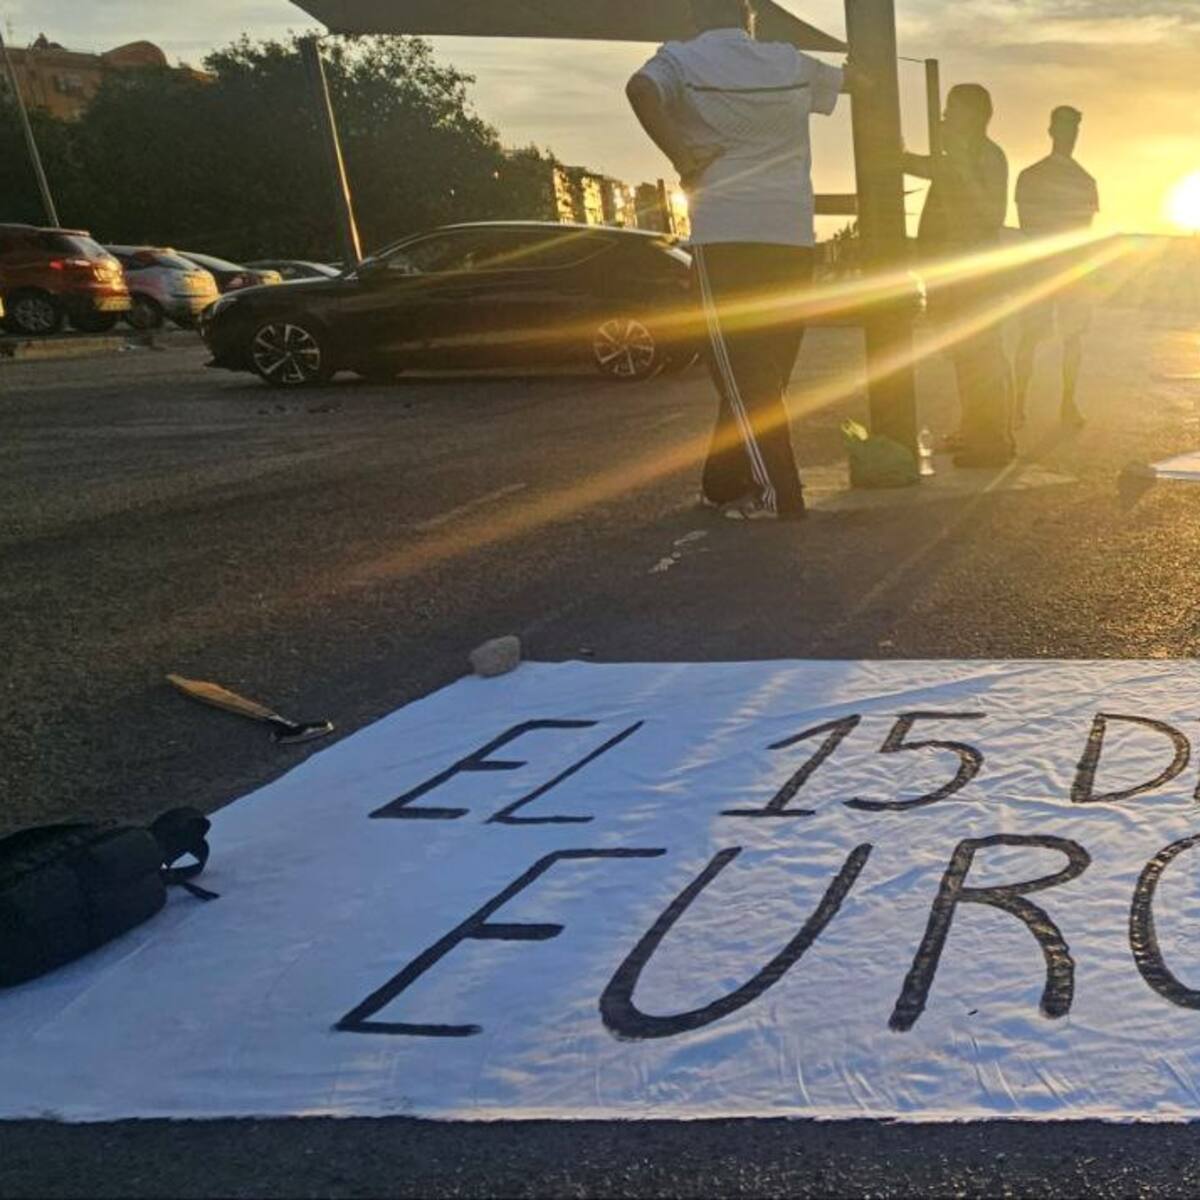 EL 15 D
EURO